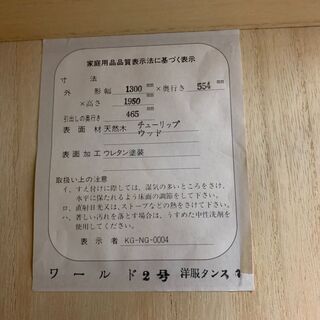 家庭用品品質表示法に基づく表示
寸法
外形幅 1300 mm ×奥行き 554 mm
×高さ 1950 mm
引出しの奥行き 465 mm
表面材 天然木 チューリップ
ウッド
表面加工 ウレタン塗装
取扱い上の注意
イ、すえ付けに際しては、湿気の多いところをさけ、
水平に保たれるよう床面の調節をして下さい。
ロ、直射日光又は、ストーブなどの熱をさけて下さい。
ハ、著しい汚れを落とす場合は、うすめた中性洗剤を
使用して下さい。
表示者 KG-NG-0004
ワールド 2号 洋服タンス